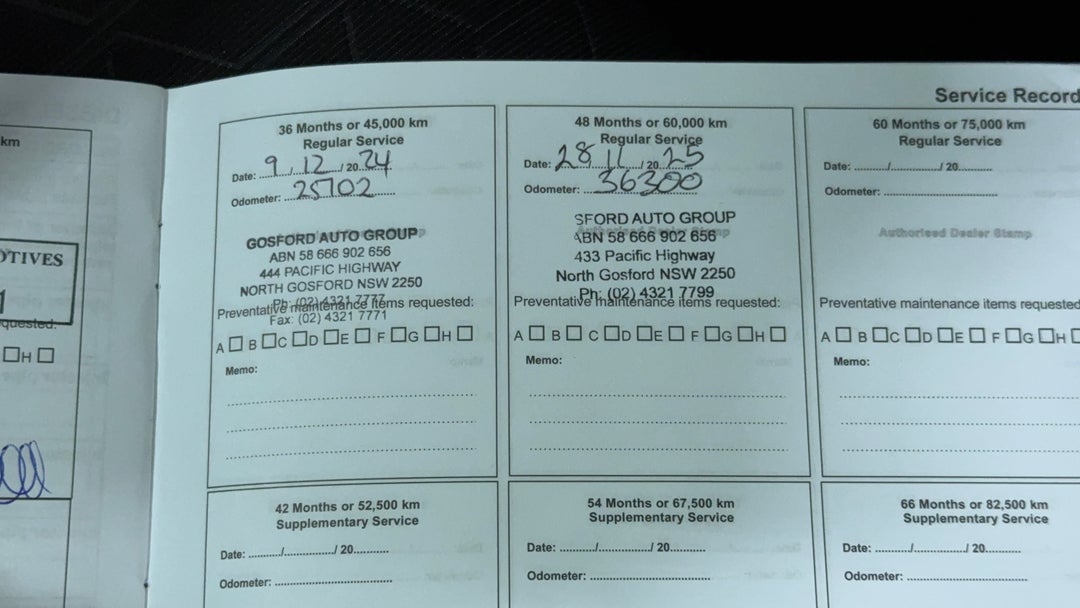 Service Record
km
OTIVES
1
quested:
H
36 Months or 45,000 km
Regular Service
Date: 9 / 12 / 20 24
Odometer: 25702
GOSFORD AUTO GROUP
ABN 58 666 902 656
444 PACIFIC HIGHWAY
NORTH GOSFORD NSW 2250
Ph: (02) 4321 7777
Preventative maintenance items requested:
Fax: (02) 4321 7771
A B C D E F G H
Memo:
48 Months or 60,000 km
Regular Service
Date: 28 / 11 / 20 25
Odometer: 36300
SFORD AUTO GROUP
Authorised Dealer Stamp
ABN 58 666 902 656
433 Pacific Highway
North Gosford NSW 2250
Ph: (02) 4321 7799
Preventative maintenance items requested:
A B C D E F G H
Memo:
60 Months or 75,000 km
Regular Service
Date: ......./.............../ 20..........
Odometer: ..................................
Authorised Dealer Stamp
Preventative maintenance items requested
A B C D E F G H
Memo:
42 Months or 52,500 km
Supplementary Service
Date: ........../.............../ 20..........
Odometer: ..................................
54 Months or 67,500 km
Supplementary Service
Date: ........../.............../ 20..........
Odometer: ..................................
66 Months or 82,500 km
Supplementary Service
Date: ........../.............../ 20..........
Odometer: ..................................